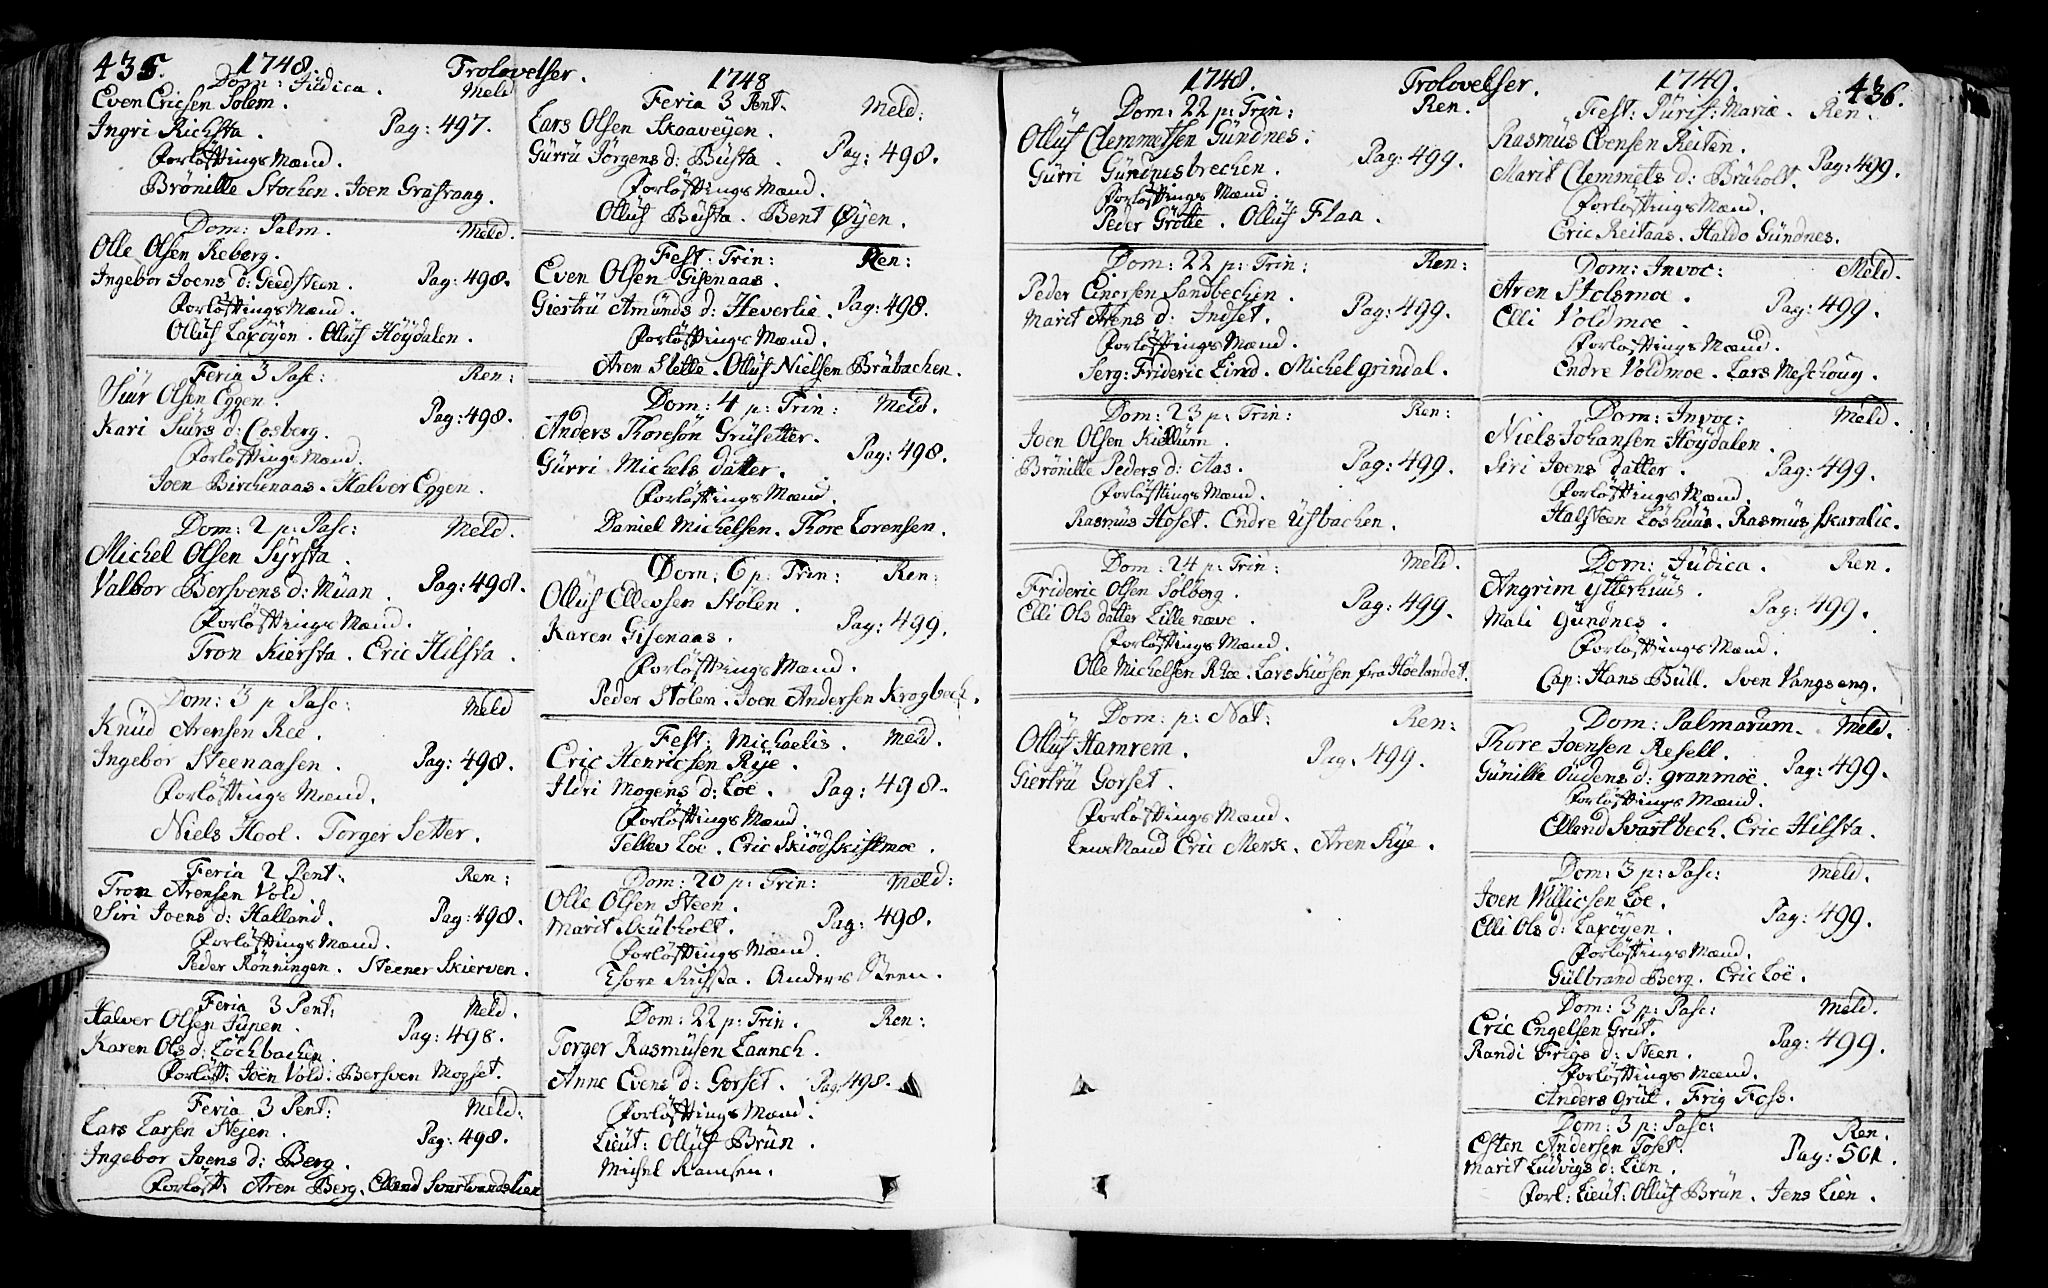 435. 1748. Trolovelser.
Dom: Judica. Meld
Even Ericsen Solem.
Ingri Richsta. Pag: 497.
Forløftings Mænd.
Brönille Stochen. Joen Grafvaag.
Dom: Palm. Meld.
Olle Olsen Reberg.
Ingebor Joens d: Geedsteen. Pag: 498.
Forløftings Mænd.
Olluf Laxöyen. Olluf Höydalen.
Feria 3 Pasc: Ren:
Siur Olsen Eggen.
Kari Siurs d: Cosberg. Pag: 498.
Forløftings Mænd.
Joen Birchenaas. Halver Eggen.
Dom: 2 p: Pasc: Meld.
Michel Olsen Syrsta.
Valbor Bersvens d: Müan. Pag: 498.
Forløftings Mænd.
Tron Kiersta. Eric Hilsta.
Dom: 3 p Pasc: Meld
Knud Arensen Ree.
Ingebor Steenaasen. Pag: 498.
Forløftings Mænd.
Niels Hool. Torger Setter.
Feria 2 Pent: Ren:
Tron Arensen Vold
Siri Joens d: Halland. Pag: 498.
Forløftings Mænd.
Peder Rönningen. Steener Skierven.
Feria 3 Pent: Meld.
Halver Olsen Jupen.
Karen Ols d: Löchbachen. Pag: 498.
Forløft: Joen Vold. Bersven Mogset.
Feria 3 Pent: Meld:
Lars Larsen Stejen.
Ingebor Joens d: Berg. Pag: 498.
Forløft: Aren Berg. Ellend Svartvandslien
1748
Feria 3 Pent. Meld:
Lars Olsen Skaaveyen.
Gürrü Jörgens d: Büsta. Pag: 498.
Forløftings Mænd.
Olluf Büsta. Bent Øyen.
Fest: Trin: Ren:
Even Olsen Gisenaas.
Giertrü Amünds d: Heverlie. Pag: 498.
Forløftings Mænd.
Aren Slette. Olluf Nielsen Bräbachen.
Dom: 4 p: Trin: Meld.
Anders Thoresön Grüsetter.
Gürri Michels datter. Pag: 498.
Forløftings Mænd.
Daniel Michelsen. Thore Lorensen.
Dom: 6 p: Trin: Ren:
Olluf Ellevsen Stölen.
Karen Gisenaas. Pag: 499.
Forløftings Mænd.
Peder Stolen. Joen Andersen Krogbech.
Fest: Michaelis. Meld.
Eric Henricsen Rÿe.
Ildri Mogens d: Loe. Pag: 498.
Forløftings Mænd
Tellev Loe. Eric Skiödskiftmoe.
Dom: 20 p: Trin: Meld:
Olle Olsen Steen.
Marit Skübholt. Pag: 498.
Forløftings Mænd
Thore Krissta. Anders Steen.
Dom: 22 p: Trin. Ren:
Torger Rasmüsen Launch.
Anne Evens d: Gorset. Pag: 498.
Forløftings Mænd.
Lieut: Olluf Brün.
Michel Ramsen.
1748. Trolovelser.
Dom: 22 p: Trin: Ren.
Olluf Clemmetsen Gündnes:
Gürri Gündnesbrechen. Pag: 499.
Forløftings Mænd
Peder Grötte. Olluf Flaa.
Dom: 22 p: Trin: Ren:
Peder Einersen Sandbechen.
Marit Arens d: Indset. Pag: 499.
Forløftings Mænd.
Serg: Frideric Lind. Michel grindal.
Dom: 23 p: Trin: Ren:
Joen Olsen Kiellüm.
Brönille Peders d: Aas. Pag: 499.
Forløftings Mænd.
Rasmüs Hoset. Endre Üsbachen.
Dom: 24 p: Trin: Meld.
Frideric Olsen Solberg.
Elli Ols datter Lille næve. Pag: 499.
Forløftings Mænd
Olle Michelsen Rhoe. Lars Kiösen fra Höelandet.
Dom: p: Nat: Ren:
Olluf Hamrem.
Giertrü Gorset. Pag. 499.
Forløftings Mænd.
Lensmand Eric Merk. Aren Rye.
1749. 436.
Fest: Purif: Mariæ. Ren:
Rasmüs Evensen Reiten.
Marit Clemmets d: Brüholt. Pag: 499.
Forløftings Mænd.
Eric Reitaas. Haldo Gündnes.
Dom: Invoc: Meld.
Aren Stolsmoe.
Elli Voldmoe. Pag: 499.
Forløftings Mænd.
Endre Voldmoe. Lars Meschoug.
Dom: Invoc: Meld.
Niels Johansen Höydalen.
Siri Joens datter. Pag: 499.
Forløftings Mænd.
Halsteen Löshuus. Rasmüs Skaralie.
Dom: Judica. Ren.
Angrim Ytterhuus.
Mali Gündnes. Pag: 499.
Forløftings Mænd.
Cap: Hans Büll. Sven Vangseng.
Dom: Palmarum. Meld.
Thore Joensen Resell.
Günille Oüdens d: granmoe. Pag: 499.
Forløftings Mænd.
Ellend Svartbech. Eric Hilsta.
Dom: 3 p: Pasc: Meld.
Joen Willicsen Loe.
Elli Ols d: Laxöyen. Pag: 499.
Forløftings Mænd.
Gülbrand Berg. Eric Loë.
Dom: 3 p: Pasc: Meld.
Eric Engelsen Grüt.
Randi Frigs d: Steen. Pag: 499.
Forløftings Mænd.
Anders Grüt. Frig Foss.
Dom: 3 p: Pasc: Ren.
Esten Andersen Toset.
Marit Lüdvigs d: Lien. Pag: 501.
Forl: Lieut: Olluf Brün. Jens Lien.